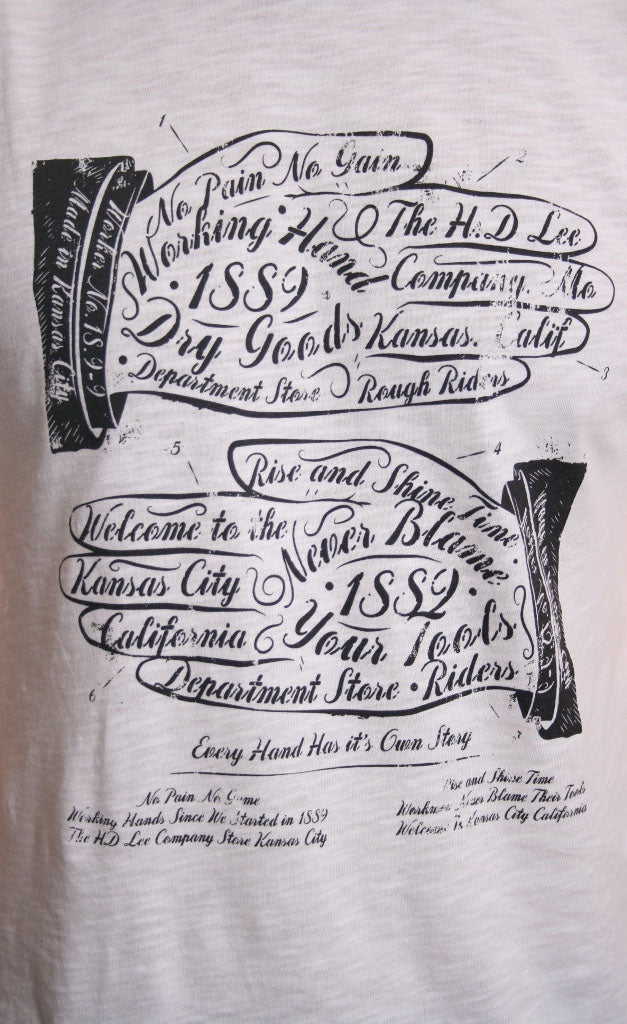 1
No Pain No Gain
2
Working Hand
The H.D Lee
1889
Company. Mo
Dry Goods
Kansas. Calif
Department Store
Rough Riders
3
Made in Kansas City
Worker No. 18 9-9
5
4
Rise and Shine Time.
Welcome to the
Never Blame
Kansas City
1889
California
Your Tools
6
Department Store • Riders
Every Hand Has it's Own Story
No Pain No Game
Working Hands Since We Started in 1889
The H.D Lee Company Store Kansas City
Rise and Shine Time
Workmen Never Blame Their Tools
Welcome Kansas City California